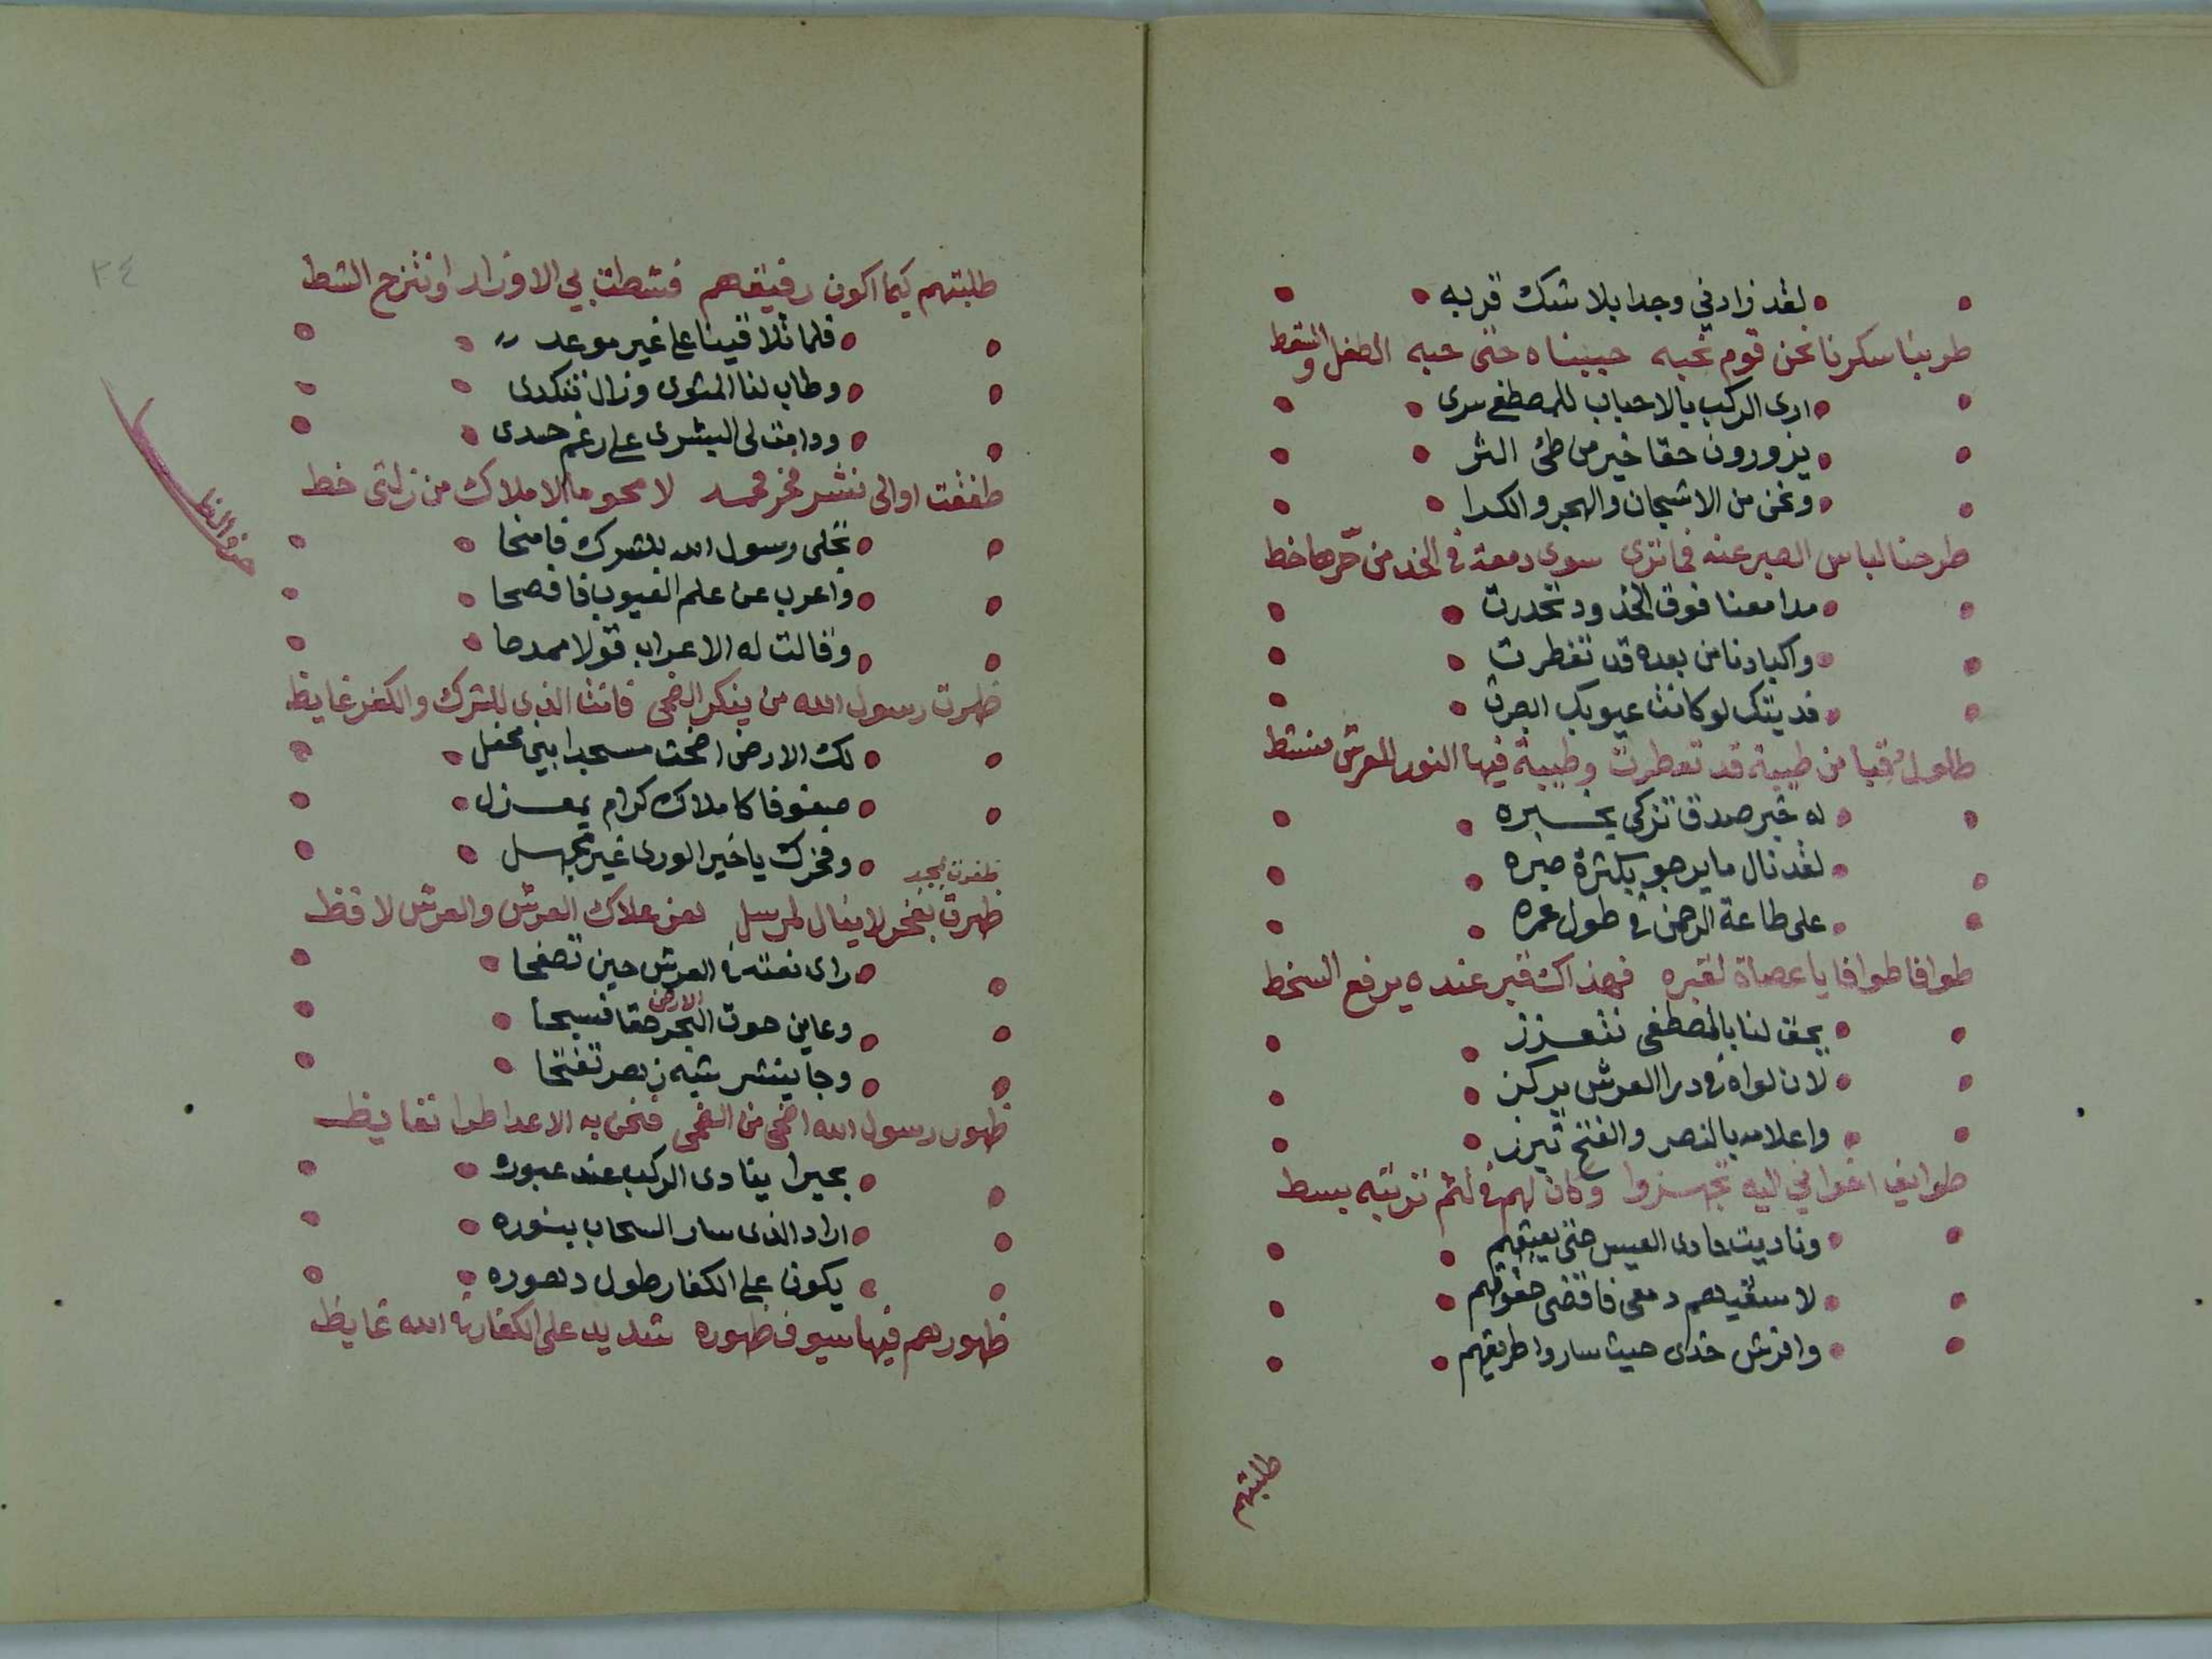 لقد زادني وجدا بلا شك قربه
طربنا سكرنا نحن قوم نحبه حببناه حتى حبه الطفل والسقط
ارى الركب بالاحباب للمصطفى سرى
يزورون حقا خير من طئ الثر
ونحن من الاشجان والهجر والكدا
طرحنا لباس الصبر عنه فما ترى سوى دمعة في الخد من حرها خط
مدامعنا فوق الخدود تحدرت
واكبادنا من بعده قد تفطرت
فديتك لو كانت عيوبك ابصرت
طلول قبا من طيبة قد تعطرت وطيبة فيها النور للعرش
له خبر صدق تزكى بخبره
لقد نال ما يرجو بكثرة صبره
على طاعة الرحمن في طول عمره
طوافا طوافا يا عصاة لقبره فهذاك قبر عنده يرفع السخط
بحق لنا بالمصطفى نتعزز
لان لواه في درا العرش يركز
واعلامه بالنصر والفتح تبرز
طوايف اخواني اليه تجهزوا وكان لهم في لثم تربته بسط
وناديت حادى العيس حتى يعيقهم
لاسقيهم دمعى فاقضى حقوقهم
وافرش خدى حيث ساروا طريقهم
طلبتهم
٣٤
طلبتهم كيما اكون رفيقهم فشطت بي الاوزار وانتزح الشط
فلما تلاقينا على غير موعد
وطاب لنا المثوى وزال تنكدى
ودامت لى البشرى على رغم حسدى
طفقت اوالى نشر فخر محمد لامحو ما الاملاك من زلتى خط
حرف الظا
تجلى رسول الله للشرك فامتحا
واعرب عن علم الغيوب فافصحا
وقالت له الاعراب قولا ممدحا
ظهرت رسول الله من ينكر الضحى فانت الذى للشرك والكفر غايظ
لك الارض اضحت مسجدا بين محفل
صفوفا كاملاك كرام بمعزل
وفخرك يا خير الورى غير مجهل
ظفرت بمجد
ظهرت بفخر لا ينال لمرسل لعز علاك العرش والعرش لافظ
راى نعته في العرش حين تصفحا
وعاين حوت البحر الارض حقا فسبحا
وجا ينشر شيه نصر تفتحا
ظهور رسول الله اضحى من الضحى فنحن به الاعدا طرا نغايظ
بحيرا ينادى الركب عند عبوره
اراد الذى سار السحاب بنوره
يكون على الكفار طول دهوره
ظهورهم فيها سيوف ظهوره شديد على الكفار في الله غايظ